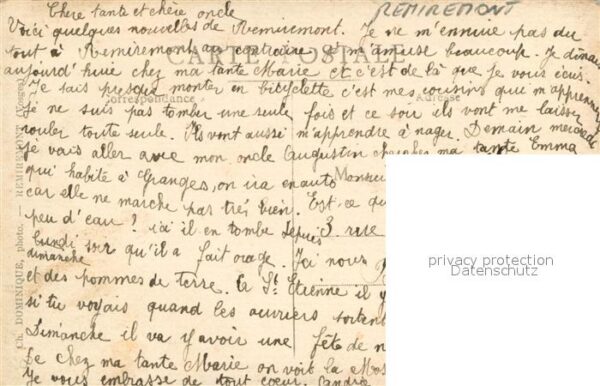 REMIREMONT
Chère tante et chère oncle
Voici quelques nouvelles de Remiremont. Je ne m'ennuie pas du
tout à Remiremont au contraire je m'amuse beaucoup. Je dîne
CARTE POSTALE
aujourd'huie chez ma tante Marie et c'est de là que je vous écris.
Je sais presque monter en bicyclette c'est mes cousins qui m'apprennent
Correspondance
Adresse
je ne suis pas tomber une seule fois et ce soir ils vont me laisser
rouler toute seule. Ils vont aussi m'apprendre à nager. Demain mercredi
je vais aller avec mon oncle Augustin chercher ma tante Emma
qui habite à Granges, on ira en auto
Monsieur
car elle ne marche pas très bien. Est-ce qu
peu d'eau? ici il en tombe depuis
3 rue
lundi soir qu'il a fait orage. Ici nous
dimanche
et des pommes de terre. à St Etienne il y
si tu voyais quand les ouvriers sortent
Dimanche il va y avoir une fête de n
De chez ma tante Marie on voit la Mos
Je vous embrasse de tout coeur. André
Ch. DOMINIQUE, photo. — REMIREMONT (Vosges)
privacy protection
Datenschutz